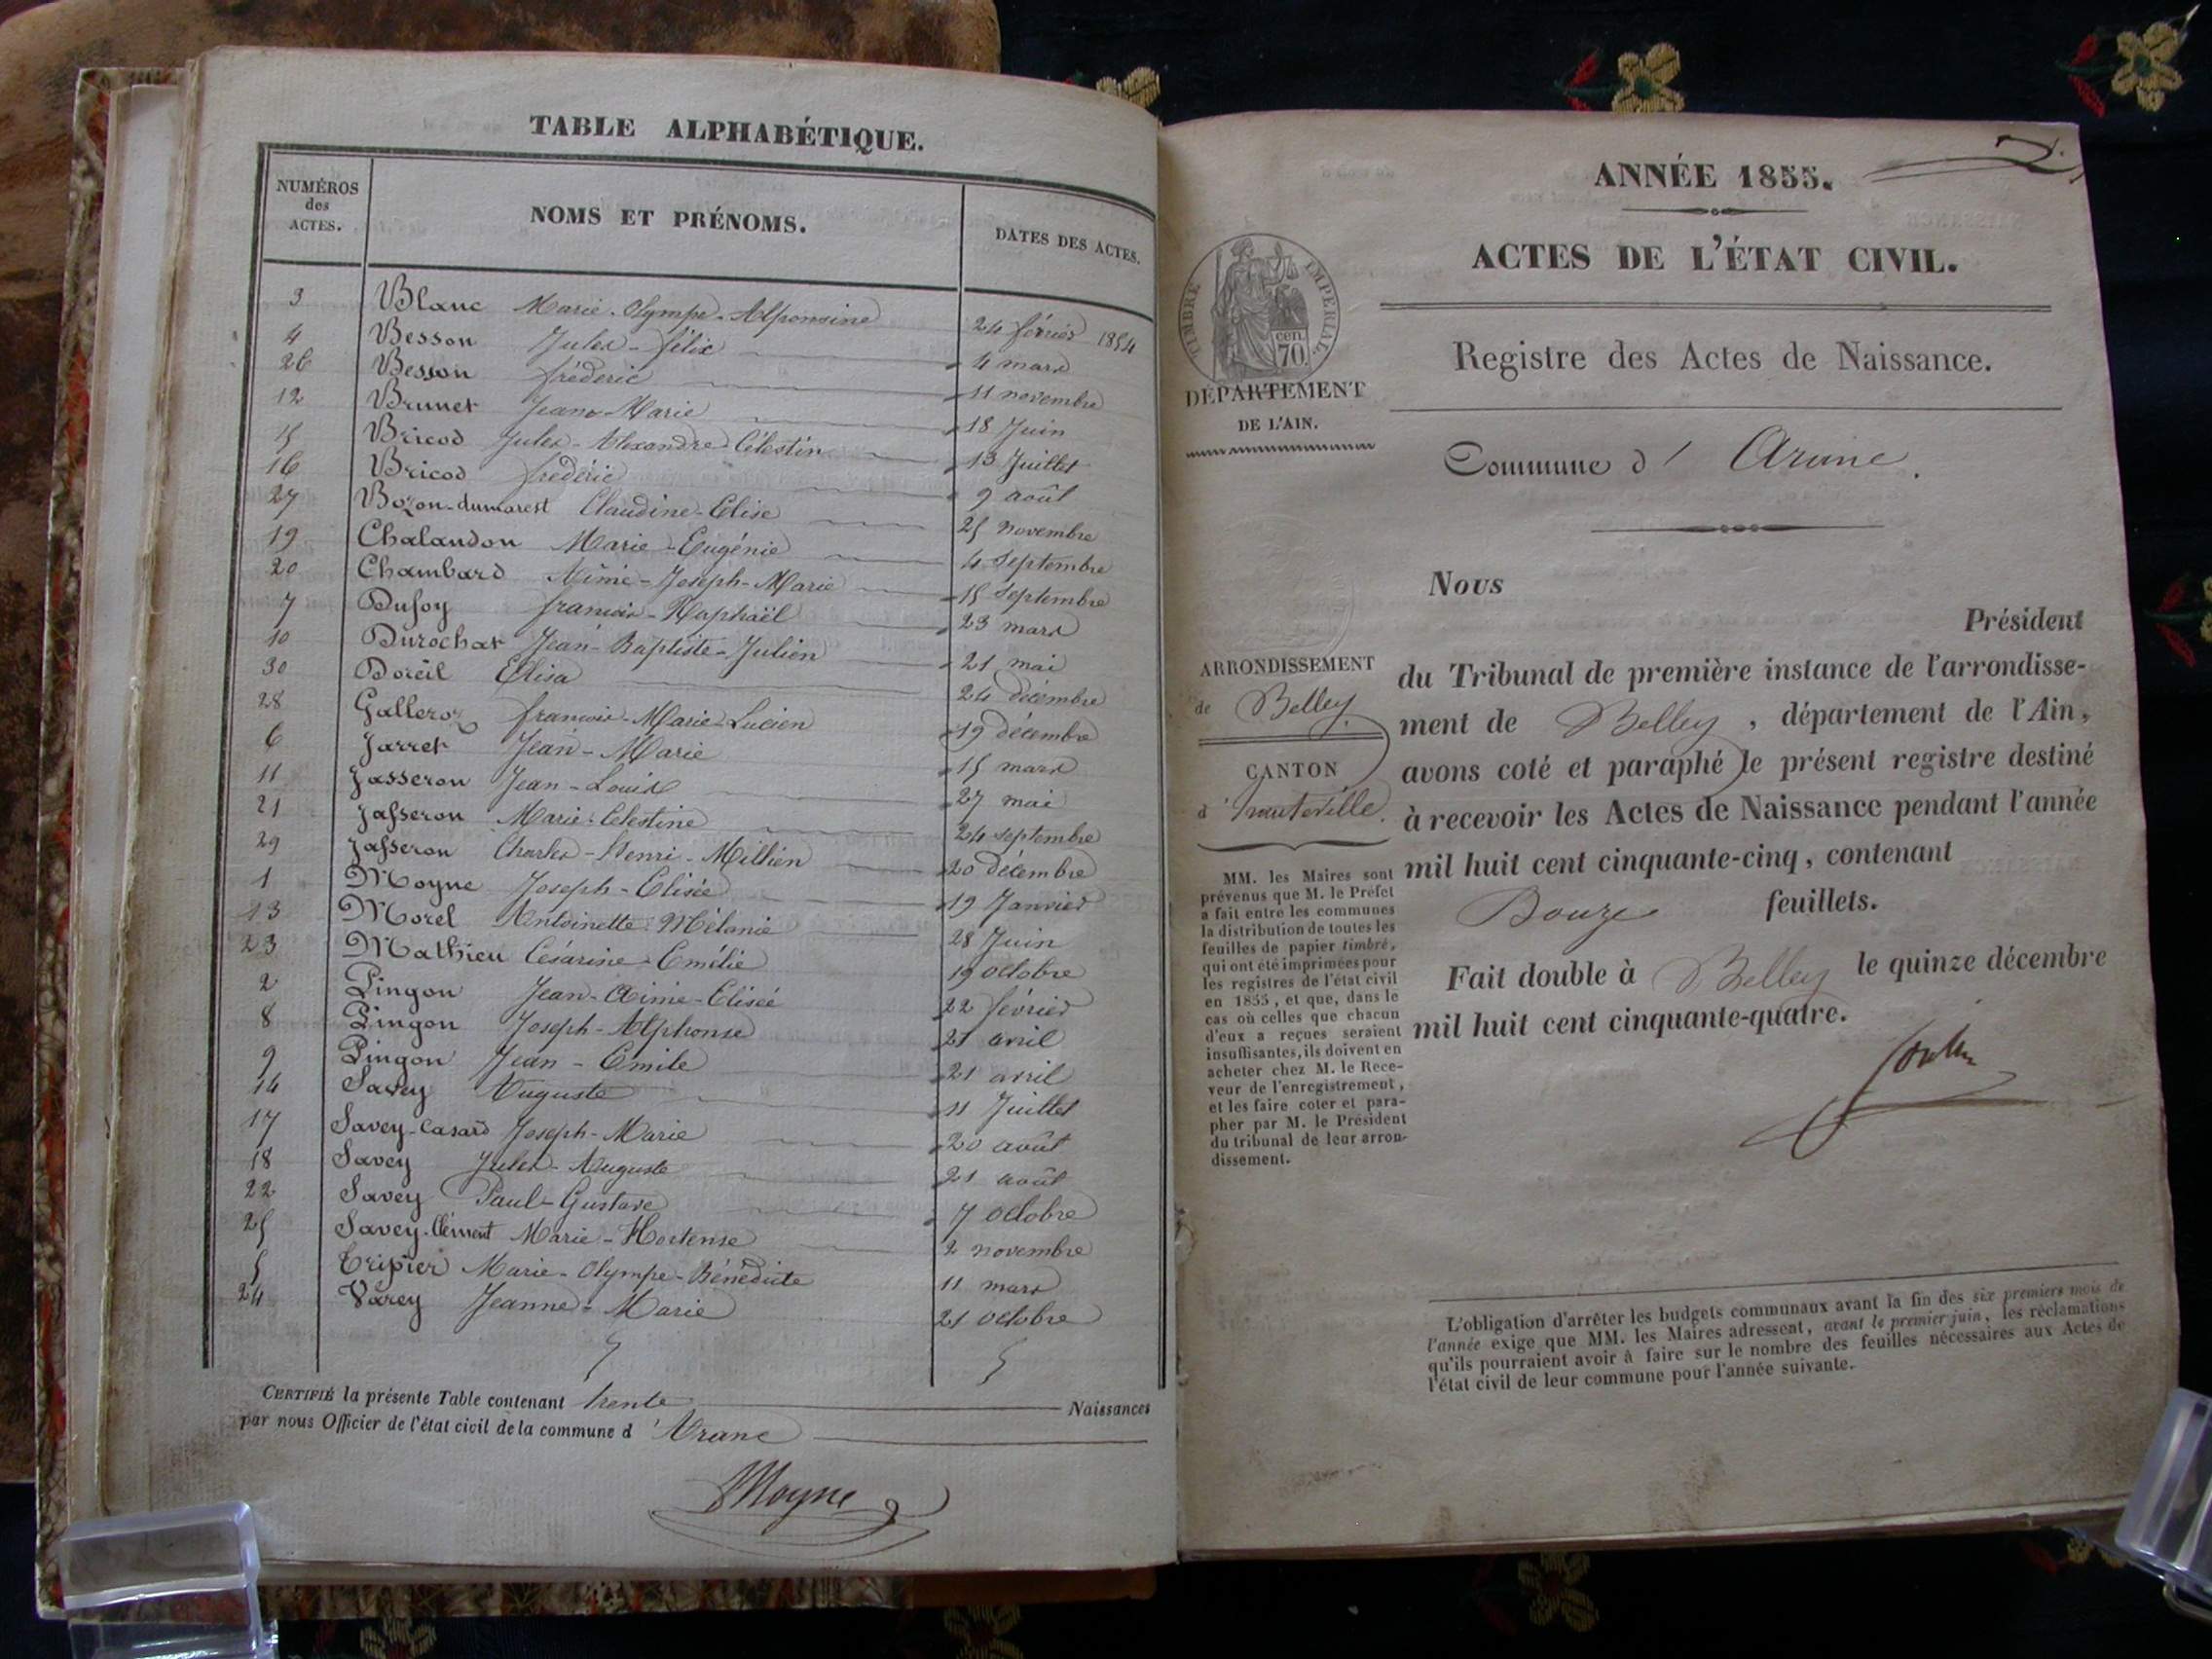 TABLE ALPHABÉTIQUE.
NUMÉROS des ACTES. NOMS ET PRÉNOMS. DATES DES ACTES.
3 Blanc Marie-Olympe-Alponsine 24 février 1854
4 Besson Jules-félix 4 mars
26 Besson fréderic 11 novembre
12 Brunet Jeane-Marie 18 Juin
15 Bricod Jules-Alexandre-Célestin 13 Juillet
16 Bricod frederic 9 août
27 Bozon-dumarest Claudine-Elise 25 novembre
19 Chalandon Marie-Eugénie 4 Septembre
20 Chambard Aimé-Joseph-Marie 15 Septembre
7 Dufoy francois-Raphaël 23 mars
10 Durochat Jean-Baptiste-Julien 21 mai
30 Doreil Elisa 24 décembre
28 Galleroz francois-Marie-Lucien 19 décembre
6 Jarret Jean-Marie 15 mars
11 Jasseron Jean-Louis 27 mai
21 Jasseron Marie-Celestine 24 septembre
29 Jasseron Charles-Henri-Millien 20 décembre
1 Moyne Joseph-Elisée 19 Janvier
13 Morel Antoinette-Mélanie 28 Juin
23 Mathieu Césarine-Emélie 19 octobre
2 Pingon Jean-Aimé-Elisée 22 février
8 Pingon Joseph-Alphonse 21 avril
9 Pingon Jean-Emile 21 avril
14 Savey Auguste 11 Juillet
17 Savey-Casard Joseph-Marie 20 août
18 Savey Jules-Auguste 21 août
22 Savey Paul-Gustave 7 octobre
25 Savey-Clément Marie-Hortense 2 novembre
5 Tripier Marie-Olympe-Bénédicte 11 mars
24 Varey Jeanne-Marie 21 octobre
CERTIFIÉ la présente Table contenant trente Naissances
par nous Officier de l'état civil de la commune d'Arane
Moyne
ANNÉE 1855.
ACTES DE L'ÉTAT CIVIL.
TIMBRE IMPÉRIAL
cen. 70.
Registre des Actes de Naissance.
DÉPARTEMENT
DE L'AIN.
Commune d' Arane.
Nous
Président
ARRONDISSEMENT
de Belley
CANTON
d'hauteville.
du Tribunal de première instance de l'arrondisse-
ment de Belley, département de l'Ain,
avons coté et paraphé le présent registre destiné
à recevoir les Actes de Naissance pendant l'année
mil huit cent cinquante-cinq, contenant
Douze feuillets.
Fait double à Belley le quinze décembre
mil huit cent cinquante-quatre.
MM. les Maires sont
prévenus que M. le Préfet
a fait entre les communes
la distribution de toutes les
feuilles de papier timbré,
qui ont été imprimées pour
les registres de l'état civil
en 1855, et que, dans le
cas où celles que chacun
d'eux a reçues seraient
insuffisantes, ils doivent en
acheter chez M. le Rece-
veur de l'enregistrement,
et les faire coter et para-
pher par M. le Président
du tribunal de leur arron-
dissement.
L'obligation d'arrêter les budgets communaux avant la fin des six premiers mois de
l'année exige que MM. les Maires adressent, avant le premier juin, les réclamations
qu'ils pourraient avoir à faire sur le nombre des feuilles nécessaires aux Actes de
l'état civil de leur commune pour l'année suivante.